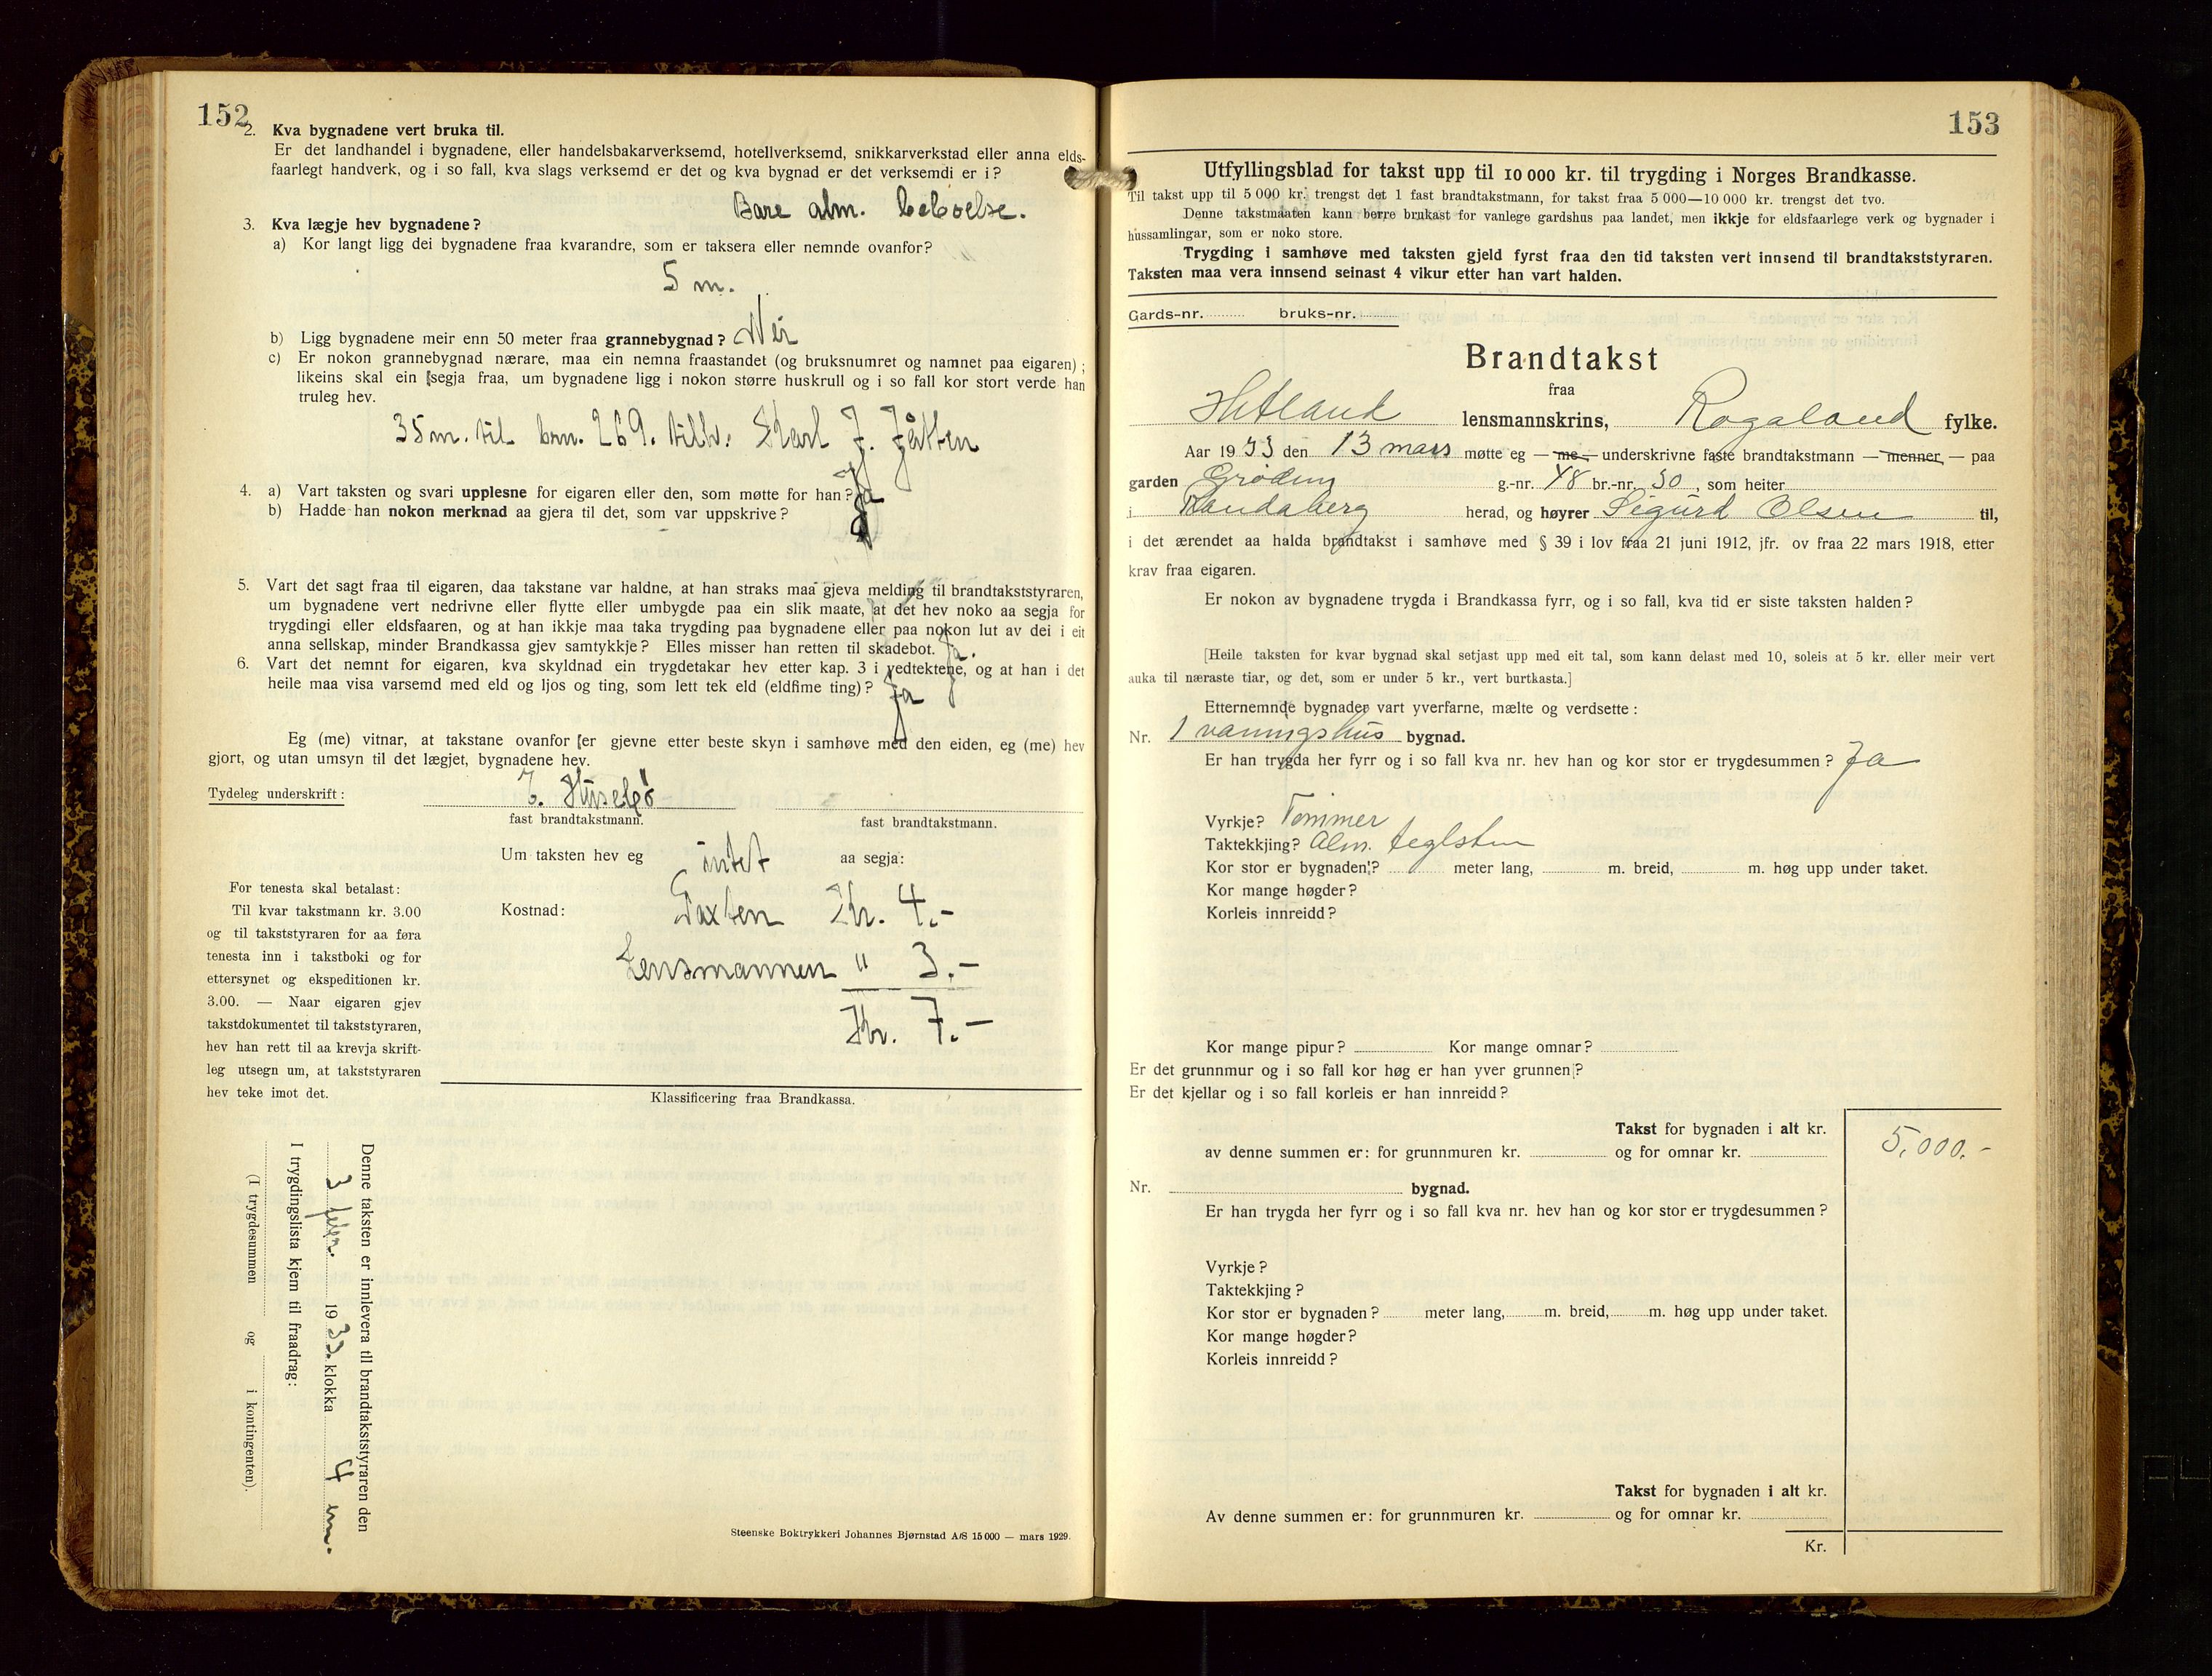 152
2. Kva bygnadene vert bruka til.
Er det landhandel i bygnadene, eller handelsbakarverksemd, hotellverksemd, snikkarverkstad eller anna elds-
faarlegt handverk, og i so fall, kva slags verksemd er det og kva bygnad er det verksemdi er i?
Bare alm. beboelse.
3. Kva lægje hev bygnadene?
a) Kor langt ligg dei bygnadene fraa kvarandre, som er taksera eller nemnde ovanfor?
5 m.
b) Ligg bygnadene meir enn 50 meter fraa grannebygnad? Nei
c) Er nokon grannebygnad nærare, maa ein nemna fraastandet (og bruksnumret og namnet paa eigaren);
likeins skal ein segja fraa, um bygnadene ligg i nokon større huskrull og i so fall kor stort verde han
truleg hev.
35 m. til brn. 269. tilh. Karl J. Jåtten
4. a) Vart taksten og svari upplesne for eigaren eller den, som møtte for han? Ja
b) Hadde han nokon merknad aa gjera til det, som var uppskrive?
5. Vart det sagt fraa til eigaren, daa takstane var haldne, at han straks maa gjeva melding til brandtakststyraren,
um bygnadene vert nedrivne eller flytte eller umbygde paa ein slik maate, at det hev noko aa segja for
trygdingi eller eldsfaaren, og at han ikkje maa taka trygding paa bygnadene eller paa nokon lut av dei i eit
anna sellskap, minder Brandkassa gjev samtykkje? Elles misser han retten til skadebot. Ja.
6. Vart det nemnt for eigaren, kva skyldnad ein trygdetakar hev etter kap. 3 i vedtektene, og at han i det
heile maa visa varsemd med eld og ljos og ting, som lett tek eld (eldfime ting)? Ja
Eg (me) vitnar, at takstane ovanfor er gjevne etter beste skyn i samhøve med den eiden, eg (me) hev
gjort, og utan umsyn til det lægjet, bygnadene hev.
Tydeleg underskrift: T. Husebø
fast brandtakstmann. fast brandtakstmann.
Um taksten hev eg intet aa segja:
Kostnad: Taxten Kr. 4.-
Lensmannen " 3.-
Kr. 7.-
For tenesta skal betalast:
Til kvar takstmann kr. 3.00
og til takststyraren for aa føra
tenesta inn i takstboki og for
ettersynet og ekspeditionen kr.
3.00. — Naar eigaren gjev
takstdokumentet til takststyraren,
hev han rett til aa krevja skrift-
leg utsegn um, at takststyraren
hev teke imot det.
Klassificering fraa Brandkassa.
Denne taksten er innlevera til brandtakststyraren den
3 febr. 1933. klokka 4 em.
I trygdingslista kjem til fraadrag:
(I trygdesummen og i kontingenten).
Steenske Boktrykkeri Johannes Bjørnstad A/S 15 000 — mars 1929.
153
Utfyllingsblad for takst upp til 10 000 kr. til trygding i Norges Brandkasse.
Til takst upp til 5 000 kr. trengst det 1 fast brandtakstmann, for takst fraa 5 000—10 000 kr. trengst det tvo.
Denne takstmaaten kann berre brukast for vanlege gardshus paa landet, men ikkje for eldsfaarlege verk og bygnader i
hussamlingar, som er noko store.
Trygding i samhøve med taksten gjeld fyrst fraa den tid taksten vert innsend til brandtakststyraren.
Taksten maa vera innsend seinast 4 vikur etter han vart halden.
Gards-nr. bruks-nr.
Brandtakst
fraa
Hetland lensmannskrins, Rogaland fylke.
Aar 1933 den 13 mars møtte eg — me — underskrivne faste brandtakstmann — menner — paa
garden Grødem g.-nr. 48 br.-nr. 30, som heiter
i Randaberg herad, og høyrer Sigurd Olsen til,
i det ærendet aa halda brandtakst i samhøve med § 39 i lov fraa 21 juni 1912, jfr. ov fraa 22 mars 1918, etter
krav fraa eigaren.
Er nokon av bygnadene trygda i Brandkassa fyrr, og i so fall, kva tid er siste taksten halden?
[Heile taksten for kvar bygnad skal setjast upp med eit tal, som kann delast med 10, soleis at 5 kr. eller meir vert
auka til næraste tiar, og det, som er under 5 kr., vert burtkasta.]
Etternemnde bygnader vart yverfarne, mælte og verdsette:
Nr. 1 vaaningshus bygnad.
Er han trygda her fyrr og i so fall kva nr. hev han og kor stor er trygdesummen? Ja
Vyrkje? Tømmer
Taktekkjing? Alm. teglsten
Kor stor er bygnaden? meter lang, m. breid, m. høg upp under taket.
Kor mange høgder?
Korleis innreidd?
Kor mange pipur? Kor mange omnar?
Er det grunnmur og i so fall kor høg er han yver grunnen?
Er det kjellar og i so fall korleis er han innreidd?
Takst for bygnaden i alt kr. 5.000.-
av denne summen er: for grunnmuren kr. og for omnar kr.
Nr. bygnad.
Er han trygda her fyrr og i so fall kva nr. hev han og kor stor er trygdesummen?
Vyrkje?
Taktekkjing?
Kor stor er bygnaden? meter lang, m. breid, m. høg upp under taket.
Kor mange høgder?
Korleis innreidd?
Takst for bygnaden i alt kr.
Av denne summen er: for grunnmuren kr. og for omnar kr.
Kr.